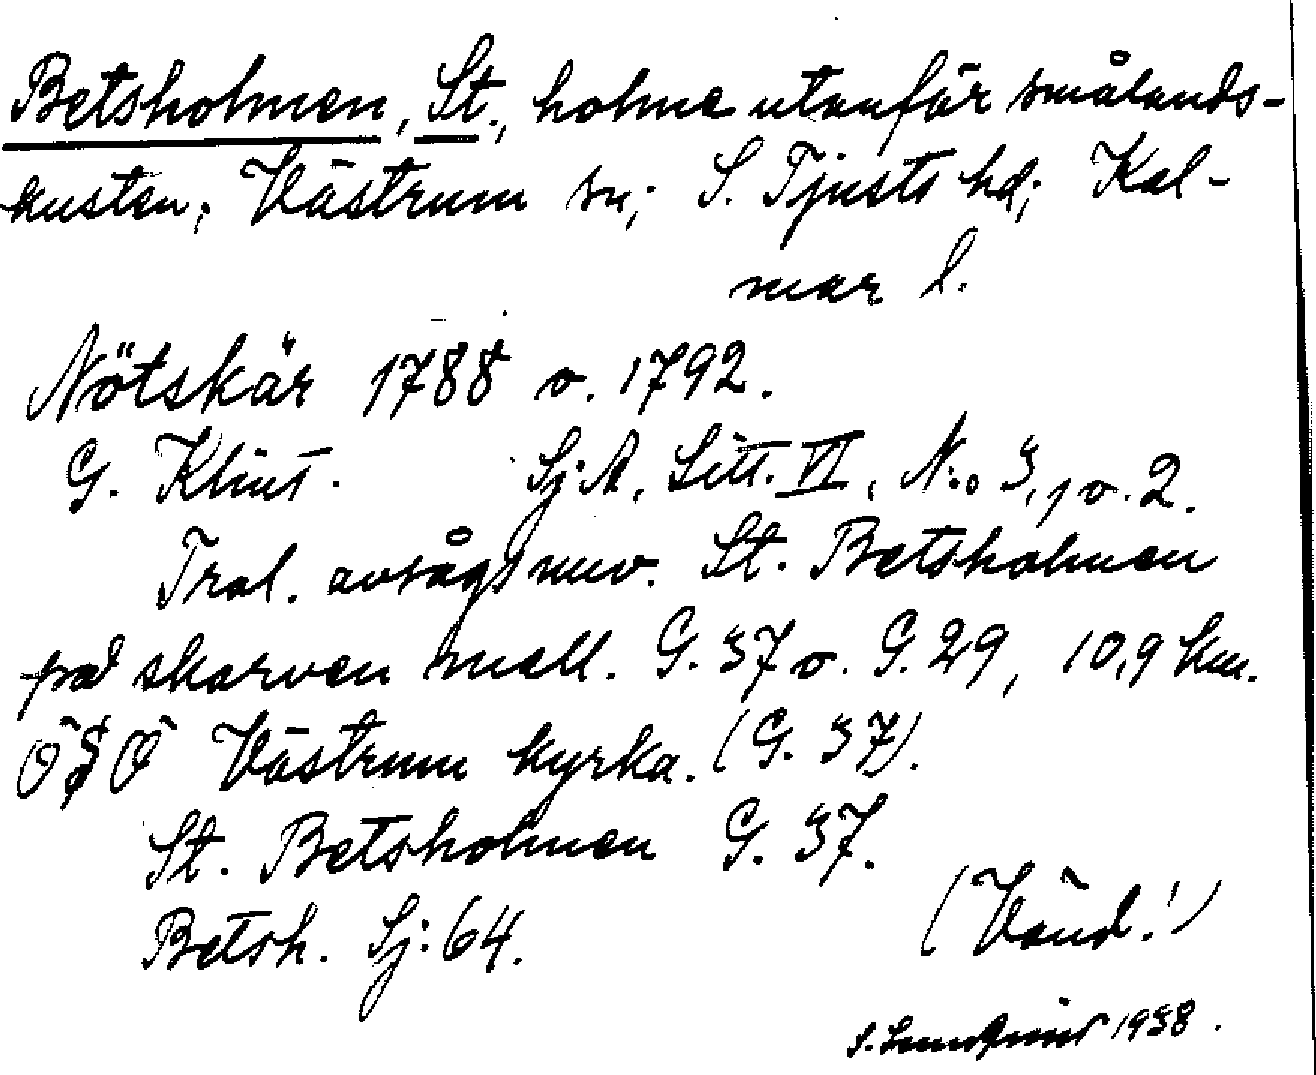 Betsholmen, St., holme utanför smålands-
kusten, Västrum sn; S. Tjusts hd; Kal-
mar l.
Nötskär 1788 o. 1792.
G. Klint. Sj:A, Litt. VI, N:o 3, 1 o. 2.
Trol. avsågs nuv. St. Betsholmen
på skarven mell. G. 37 o. G. 29, 10,9 km.
ÖSÖ Västrum kyrka. (G. 37).
St. Betsholmen G. 37.
Betsh. Sj: 64.
(Vänd!)
S. 1938.